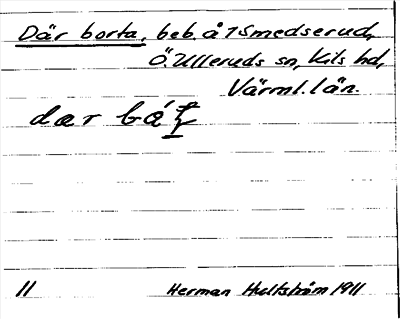 Där borta, beb. å 1 Smedserud,
Ö. Ulleruds sn, Kils hd,
Värml. län.
dær
11 Herman Hultström 1911